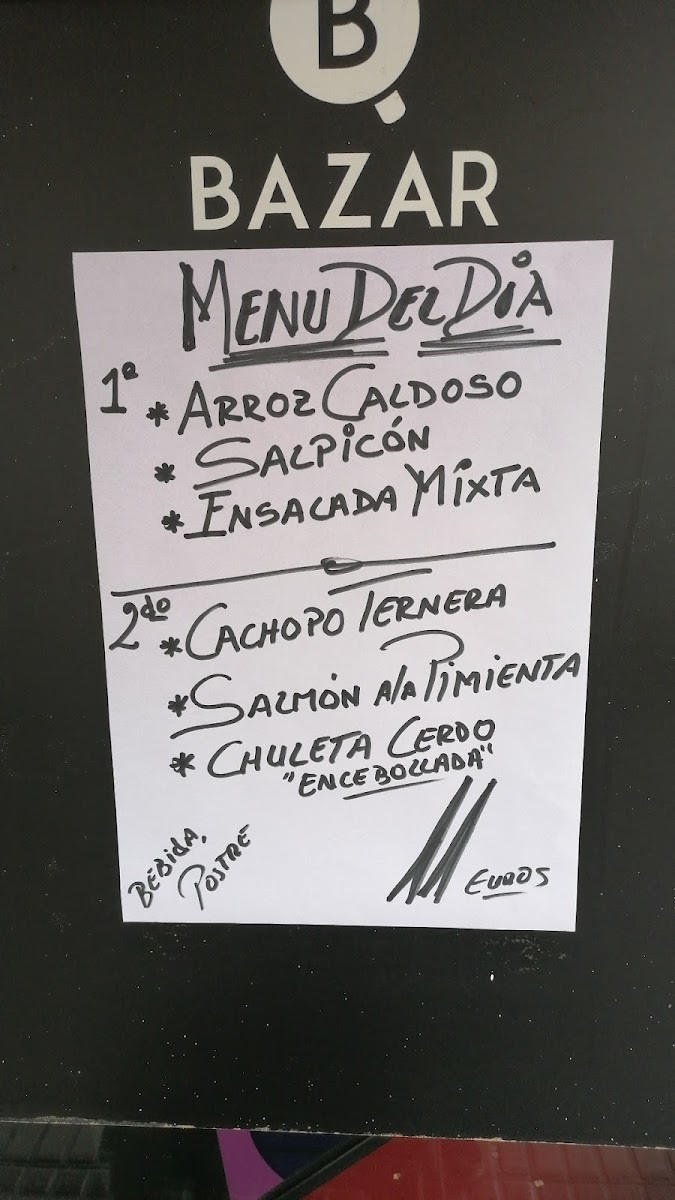 B
BAZAR
MENU DEL DIA
1º
* ARROZ CALDOSO
* SALPICÓN
* ENSALADA MIXTA
2do
* CACHOPO TERNERA
* SALMÓN A/A PIMIENTA
* CHULETA CERDO
"ENCEBOLLADA"
BEBIDA,
POSTRE
11 EUROS